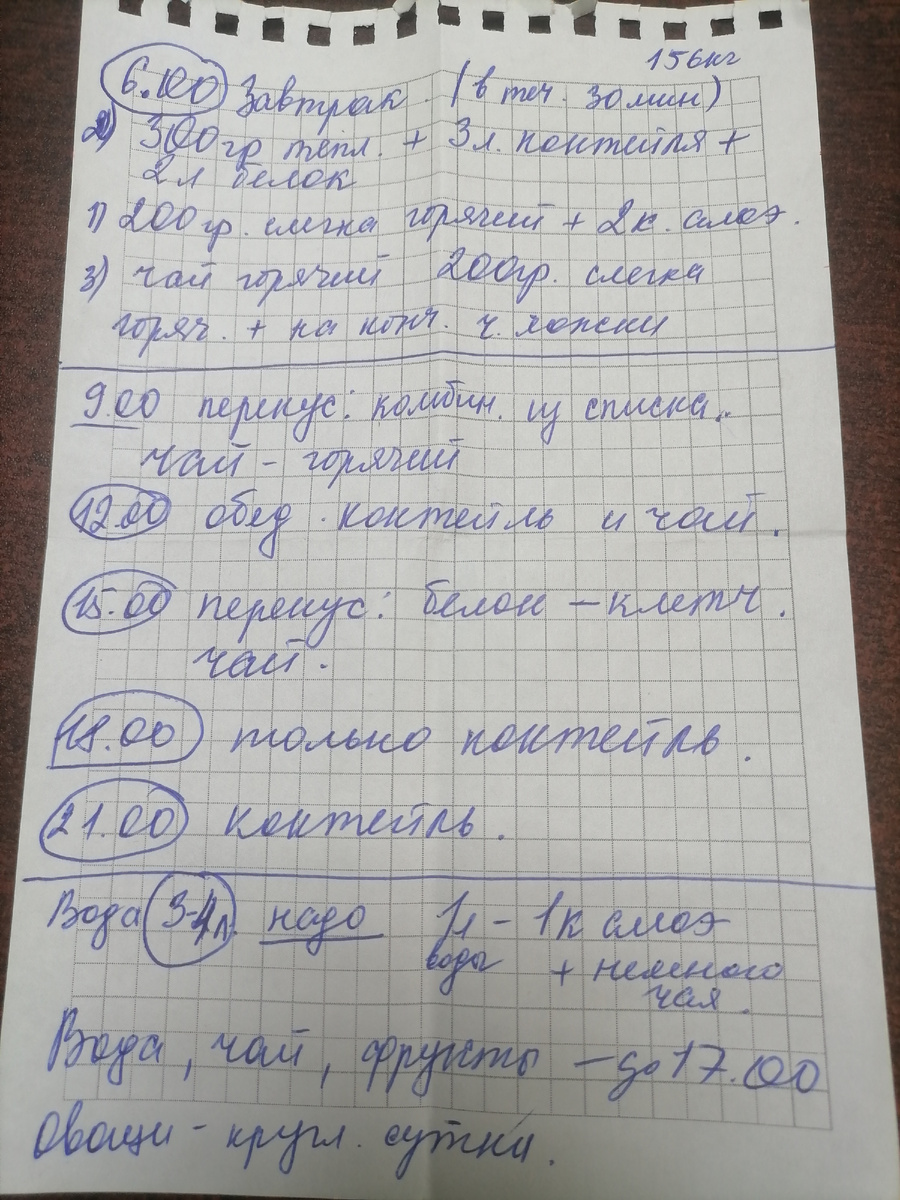 156кг
6.00 Завтрак. (в теч. 30 мин)
2) 300 гр тепл. + 3л. коктейля +
2л белок
1) 200 гр. слегка горячий + 2к. алоэ.
3) чай горячий 200гр. слегка
горяч. + на конч. ч. ложки
9.00 перекус: комбин. из списка.
чай - горячий
12.00 обед. коктейль и чай.
15.00 перекус: белок - клетч.
чай.
18.00 только коктейль.
21.00 коктейль.
Вода 3-4л. надо 1л - 1к алоэ
воды + немного
чая.
Вода, чай, фрукты - до 17.00
Овощи - кругл. сутки.